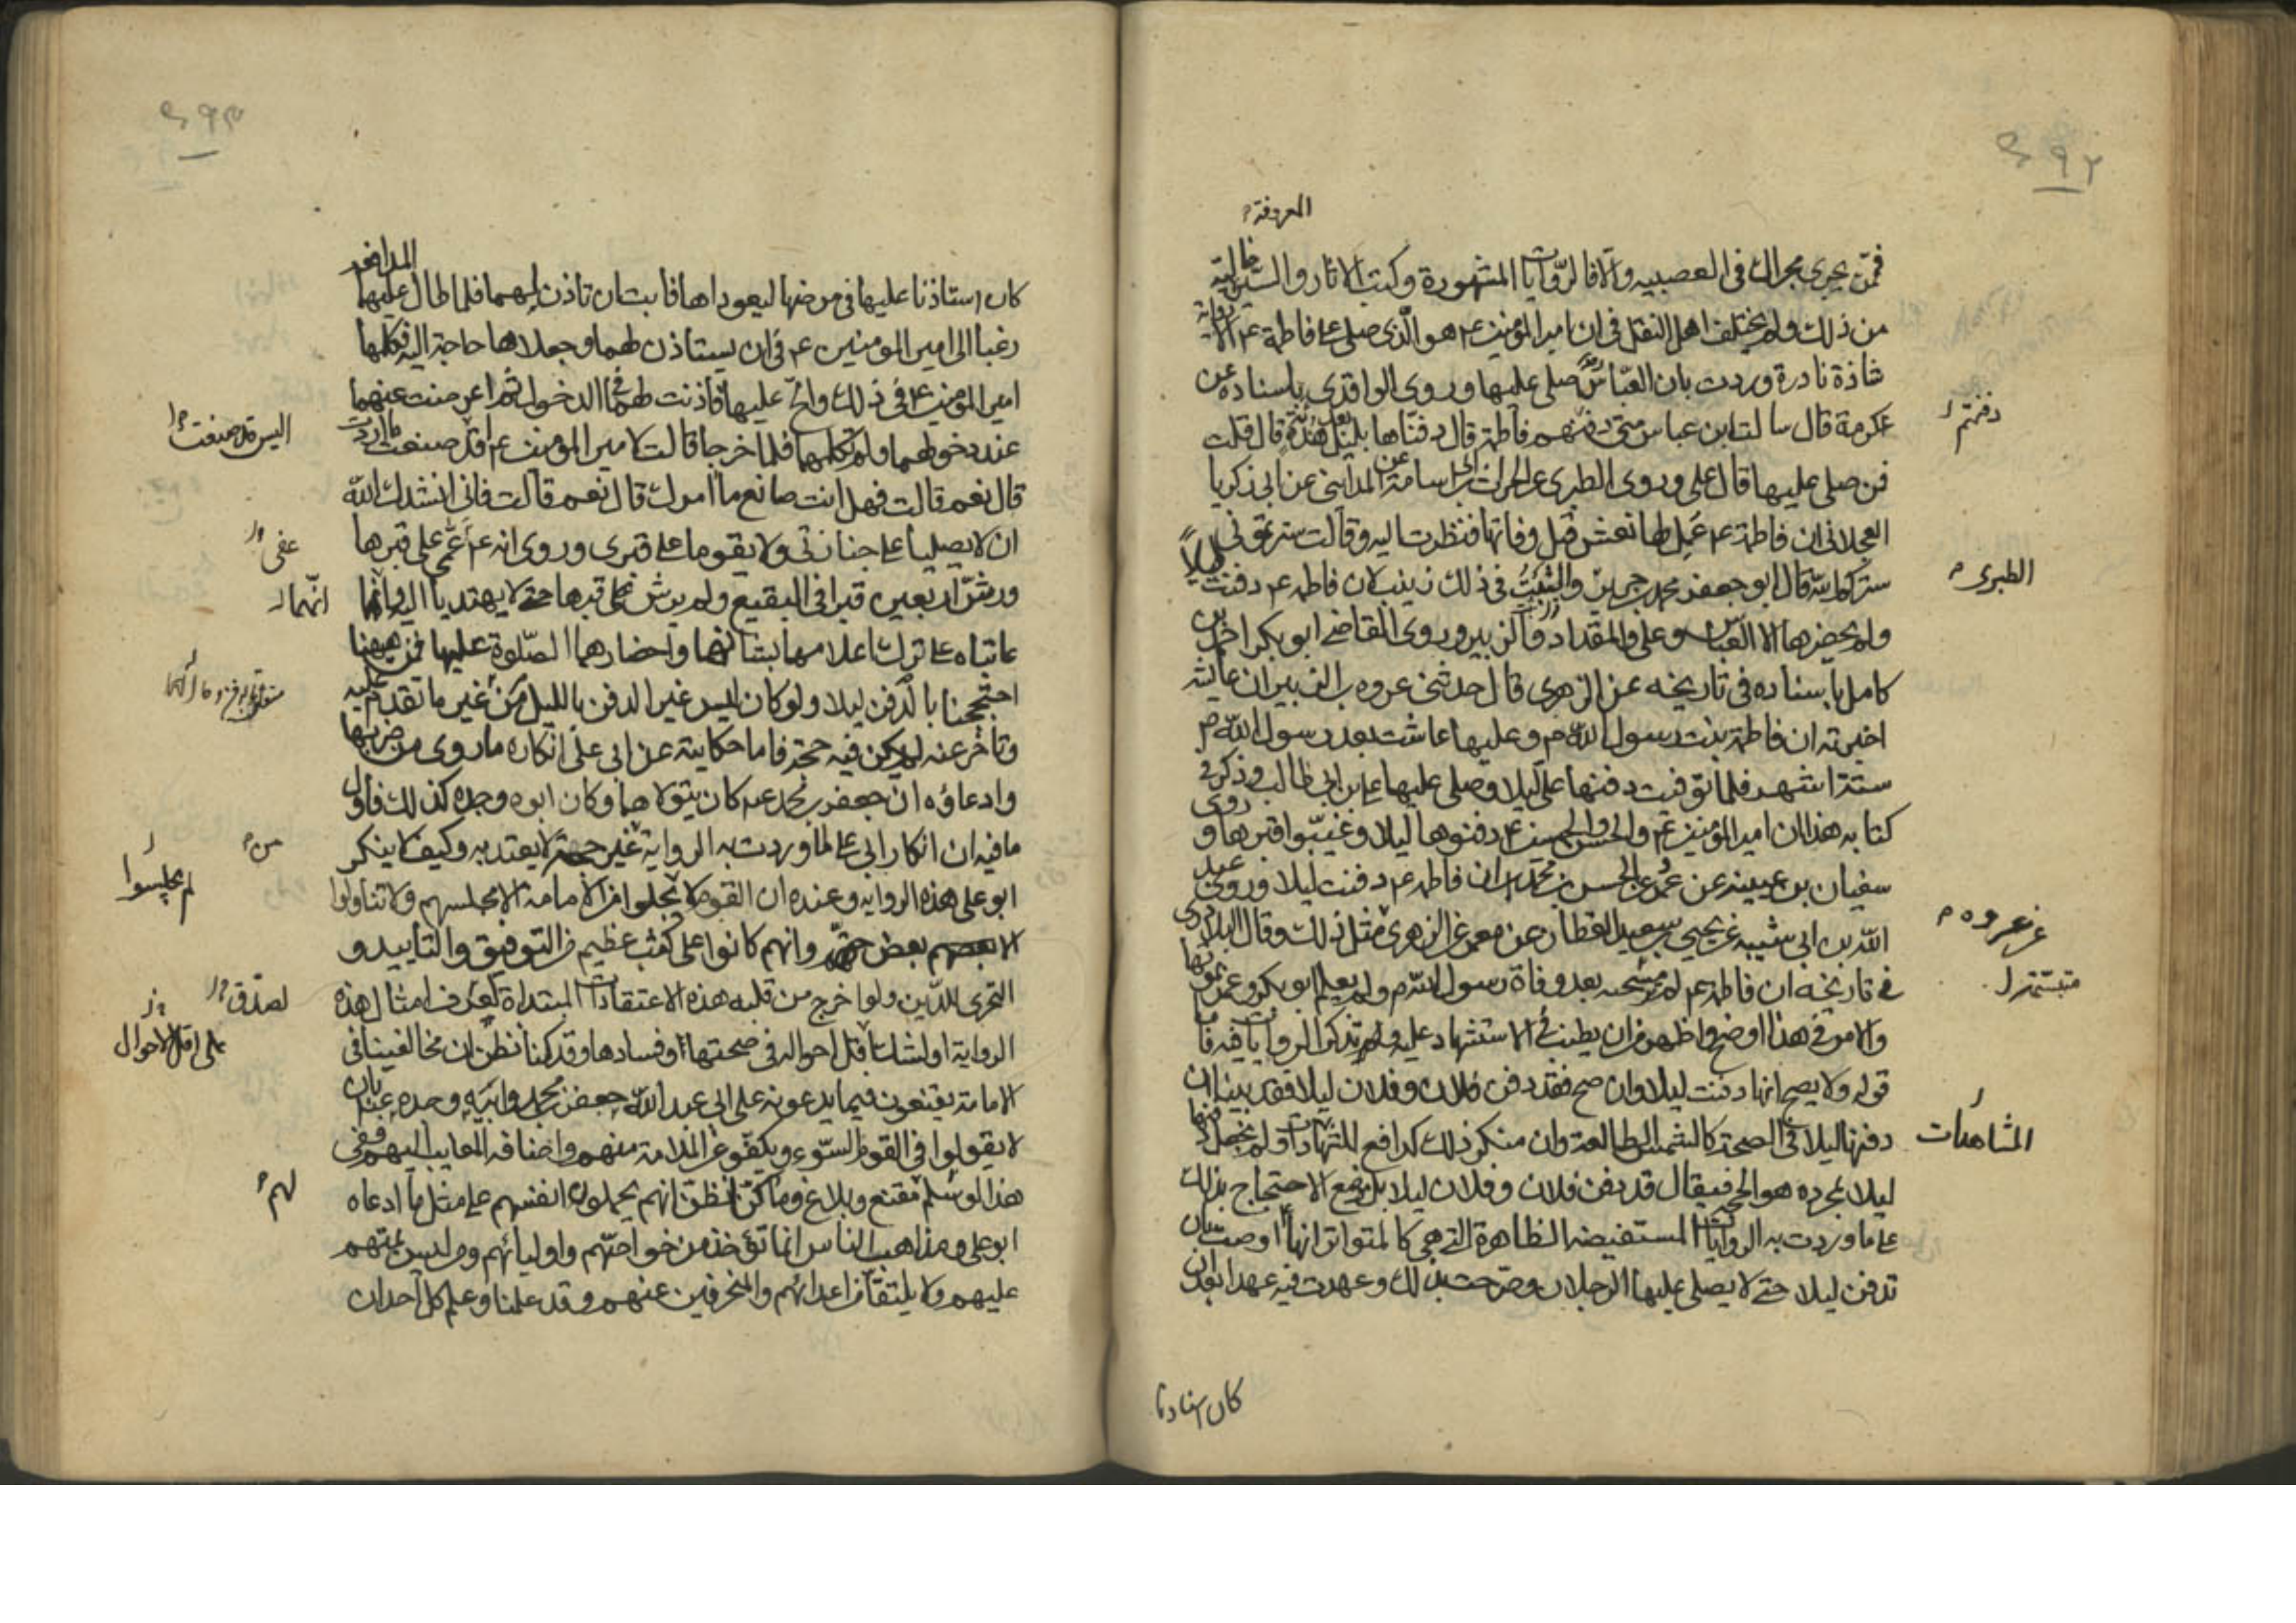 ٤٩٢
المعروفة
فمن يجرى مجراك فى العصبيه والا فالروايات المشهورة وكتب الاثار والسير خالية
من ذلك ولم يختلف اهل النقل فى ان امير المؤمنين ع هو الذى صلى على فاطمة ع الا رواية
شاذة نادرة وردت بان العباس صلى عليها وروى الواقدى باسناده عن
عكرمة قال سالت ابن عباس متى دفنتم فاطمة قال دفناها بليل بعد هدئة قال قلت
دفنتم
فمن صلى عليها قال على وروى الطبرى عن الحرث بن ابى اسامة عن المدائنى عن ابى زكريا
العجلانى ان فاطمة ع عمل لها نعش قبل وفاتها فنظرت اليه وقالت سترتمونى
ستركم الله قال ابو جعفر محمد بن جرير والثبت فى ذلك زينب لان فاطمه ع دفنت ليلاً
الطبرى
ولم يحضرها الا العباس وعلى والمقداد والزبير وروى القاضى ابو بكر احمد بن
كامل باسناده فى تاريخه عن الزهرى قال حدثنى عروه بن الزبير ان عايشه
اخبرته ان فاطمة بنت رسول الله ص وعليها عاشت بعد رسول الله ص
ستة اشهر فلما توفيت دفنها على ليلا وصلى عليها على بن ابى طالب وذكر فى
كتابه هذا ان امير المؤمنين ع والحسن والحسين ع دفنوها ليلا وغيبوا قبرها وروى
سفيان بن عيينه عن عمرو عن الحسن بن محمد ان فاطمه ع دفنت ليلا وروى عبد
الله بن ابى شيبه عن يحيى بن سعيد القطان عن معمر عن الزهرى مثل ذلك وقال البلاذرى
عن عروه
فى تاريخه ان فاطمة ع لم بعد وفاة رسول الله ص ولم يعلم ابو بكر وعمر بموتها
متبسمة
والامر فى هذا اوضح واظهر من ان يطنب فى الاستشهاد عليه ونذكر الروايات فيه فاما
قوله ولا يصح انها دفنت ليلا وان صح فقد دفن فلان وفلان ليلا فقد بينا ان
دفنها ليلا فى الصحة كالشمس الطالعة وان منكر ذلك كدافع المشاهدات ولم نجعل دفنها
المشاهدات
ليلا بمجرده هو الحجة فيقال قد دفن فلان وفلان ليلا بل يقع الاحتجاج بذلك
على ما وردت به الروايات المستفيضه الظاهرة التى هى كالمتواتر انها اوصت بان
تدفن ليلا حتى لا يصلى عليها الرجلان وصرحت بذلك وعهدت فيه عهدا بعد ان
كان استاذنا
٤٩٣
كان استاذنا عليها فى مرضها ليعوداها فابت ان تاذن لهما فلما طال عليهما المدافعه
رغبا الى امير المومنين ع فى ان يستاذن لهما وجعلاها حاجة اليه فكلمها
امير المؤمنين ع فى ذلك والح عليها فاذنت لهما فى الدخول ثم اعرضت عنهما
عند دخولهما ولم تكلمهما فلما خرجا قالت لامير المؤمنين ع اقد صنعت ما اردت
اليس قد صنعت
قال نعم قالت فهل انت صانع ما امرك قال نعم قالت فانى انشدك الله
ان لا يصليا على جنازتى ولا يقوما على قبرى وروى انه ع عمى على قبرها
عفى
ورش اربعين قبرا فى البقيع ولم يرش على قبرها حتى لا يهتديا اليه وانما
انهما
عاتباه على ترك اعلامهما بشانها واحضارهما الصلوة عليها فمن ههنا
احتججنا بالدفن ليلا ولو كان ليس غير الدفن بالليل من غير ما تقدم عليه
وتاخر عنه لم يكن فيه حجة فاما حكايته عن ابى على انكاره ما روى من ضربها
وادعاؤه ان جعفر بن محمد ع كان يتولاهما وكان ابوه وجده كذلك فاول
ما فيه ان انكار ابى على لما وردت به الرواية غير حجة لا يعتد به وكيف لا ينكر
من
ابو على هذه الروايه وعنده ان القوم لا من الامامة الا مجلسهم ولا تناولوا
لم يجلسوا
الا بعض حقهم وانهم كانوا على كثب عظيم من التوفيق والتاييد و
التحرى للدين ولو اخرج من قلبه هذه الاعتقادات المبتداة لعرف امثال هذه
لصدق
الرواية او لشك اقل احواله فى صحتها او فسادها وقد كنا نظن ان مخالفينا فى
على اقل الاحوال
الامامة يقنعون فيما يدعونه على ابى عبد الله جعفر بن محمد وابيه وجده ع بان
لا يقولوا فى القوم السوء ويكفوا عن الملامة منهم واضافه المعايب اليهم ففى
هذا لو سلم مقنع وبلاغ وما كنا نظن انهم يحملون انفسهم على مثل ما ادعاه
لهم
ابو على ومذاهب الناس انما تؤخذ من خواصهم واوليائهم ومن ليس بمتهم
عليهم ولا يلتقا من اعدائهم والمنحرفين عنهم وقد علمنا وعلم كل احد ان